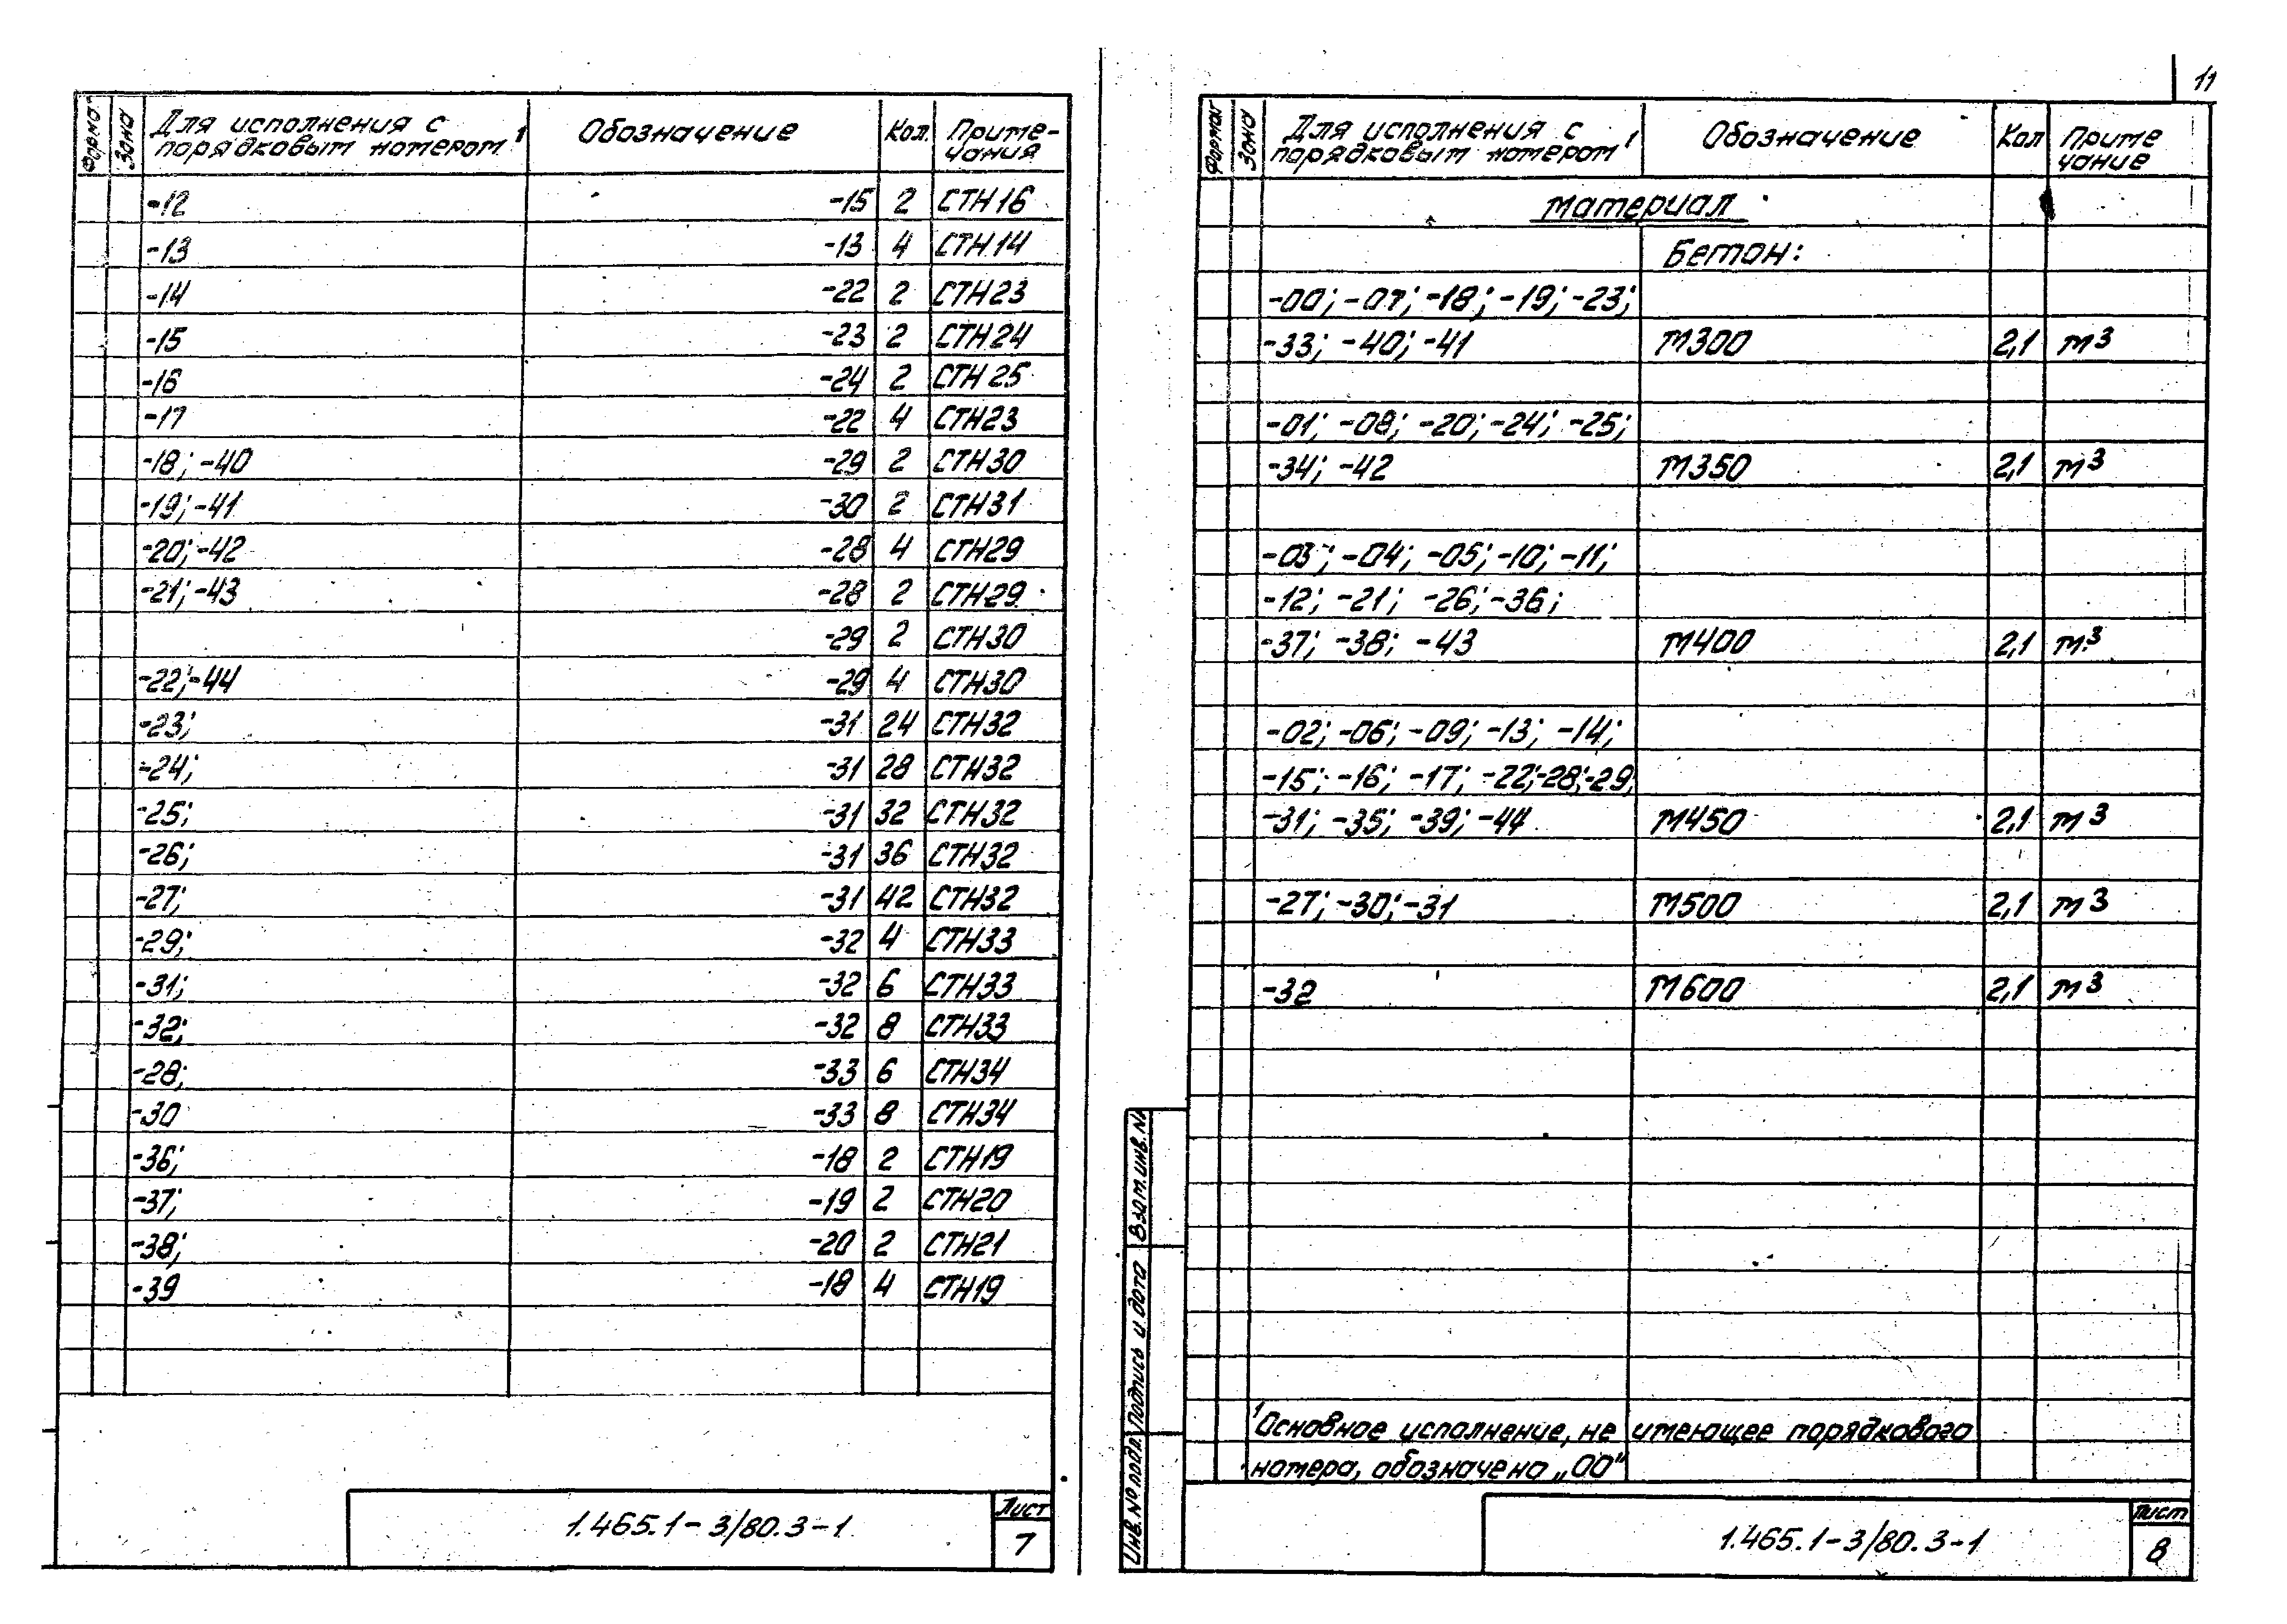 Формат Зона Для исполнения с порядковым номером 1 Обозначение Кол. Приме-чания
-12 -15 2 СТН16
-13 -13 4 СТН14
-14 -22 2 СТН23
-15 -23 2 СТН24
-16 -24 2 СТН25
-17 -22 4 СТН23
-18; -40 -29 2 СТН30
-19; -41 -30 2 СТН31
-20; -42 -28 4 СТН29
-21; -43 -28 2 СТН29
-29 2 СТН30
-22; -44 -29 4 СТН30
-23; -31 24 СТН32
-24; -31 28 СТН32
-25; -31 32 СТН32
-26; -31 36 СТН32
-27; -31 42 СТН32
-29; -32 4 СТН33
-31; -32 6 СТН33
-32; -32 8 СТН33
-28; -33 6 СТН34
-30 -33 8 СТН34
-36; -18 2 СТН19
-37; -19 2 СТН20
-38; -20 2 СТН21
-39 -18 4 СТН19
1.465.1-3/80.3-1
Лист
7
11
Формат Зона Для исполнения с порядковым номером 1 Обозначение Кол Приме чание
Материал
Бетон:
-00; -07; -18; -19; -23;
-33; -40; -41 М300 2,1 м3
-01; -08; -20; -24; -25;
-34; -42 М350 2,1 м3
-03; -04; -05; -10; -11;
-12; -21; -26; -36;
-37; -38; -43 М400 2,1 м3
-02; -06; -09; -13; -14;
-15; -16; -17; -22; -28; -29;
-31; -35; -39; -44 М450 2,1 м3
-27; -30; -31 М500 2,1 м3
-32 М600 2,1 м3
1 Основное исполнение, не имеющее порядкового
номера, обозначено „00"
Инв. № подл. Подпись и дата Взам. инв. №
1.465.1-3/80.3-1
Лист
8